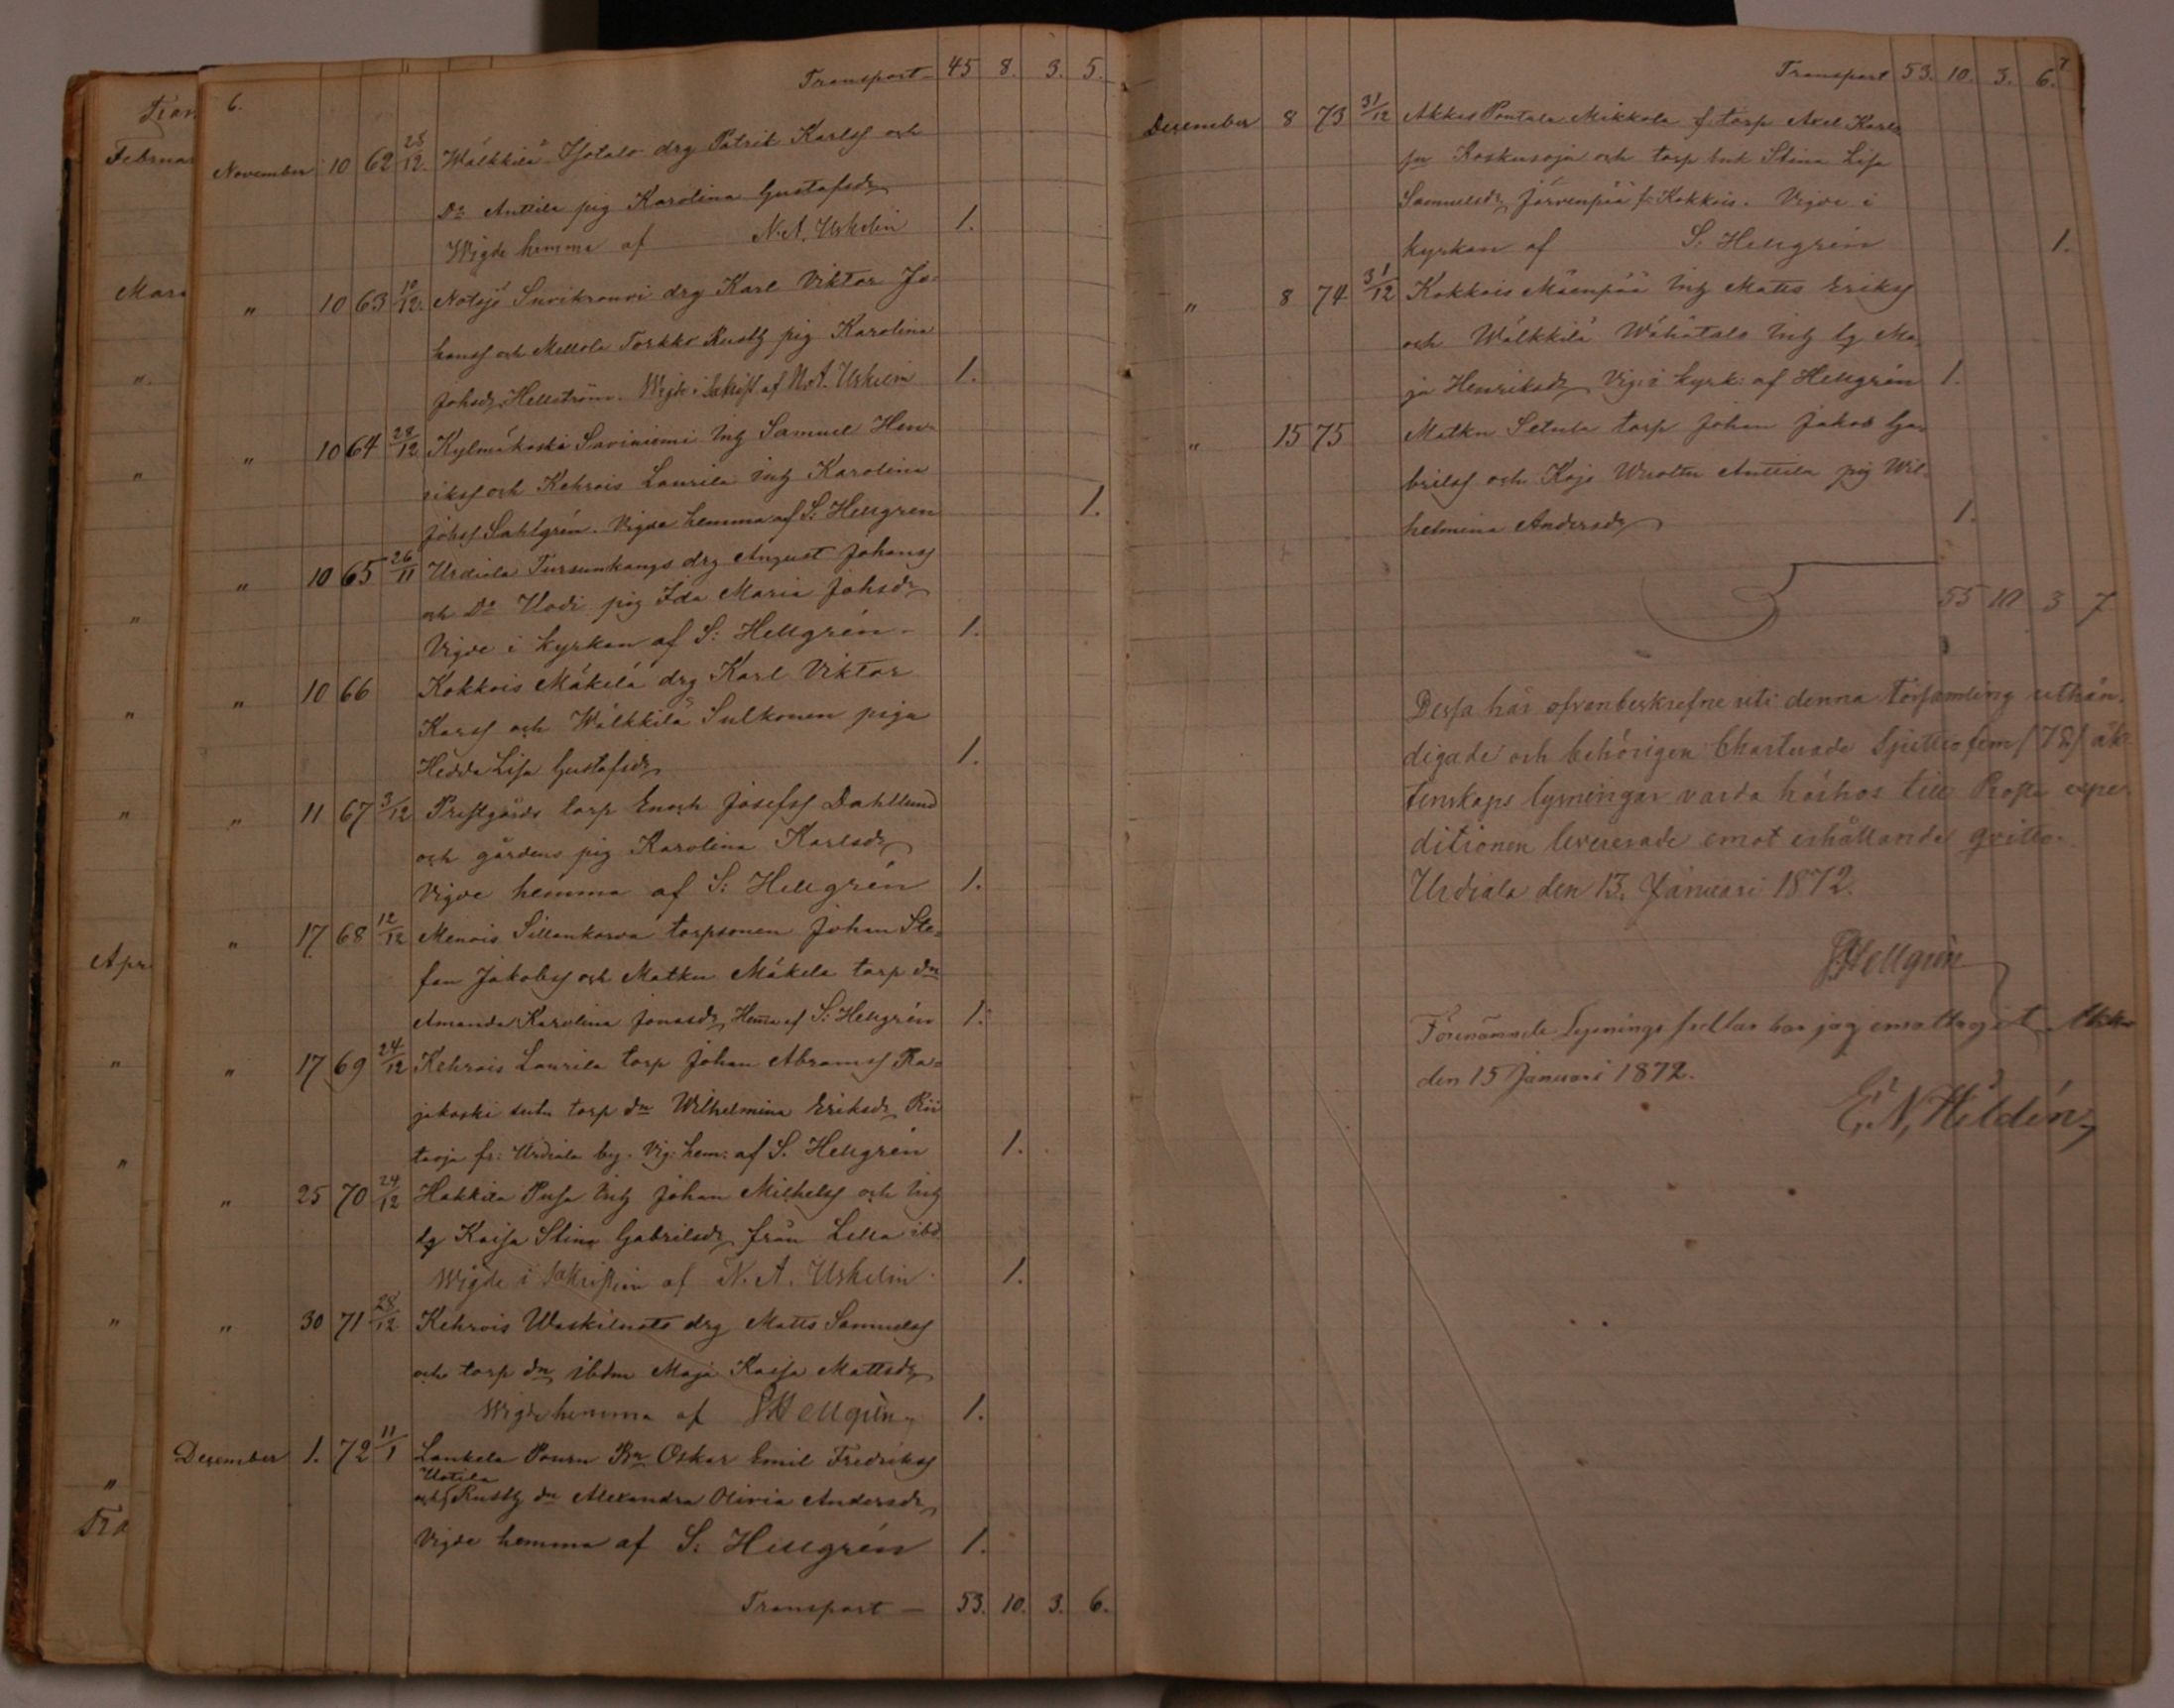 Febru
Mars
Apr
6.
Transport — 45 8. 3. 5.
November 10 62 28/12. Wälkkilä Isotalo drg Patrik Karlss och
Do Anttila pig Karolina Gustafsdr
Wigde hemma af N. A. Uskelin 1.
" 10 63 10/12. Notsjö drg Karl Viktor Jo-
hanss och Mellola Torkko Rusth pig Karolina
Johsdr Hellström. Wigde i af N. A. Uskelin 1.
" 10 64 28/12 Kylmäkoski Saviniemi Inh Samuel Hen-
rikss och Kehrois Laurila inh Karolina
Johss Sahlgrén. Vigde hemma af S: Hellgren 1.
" 10 65 26/11 Urdiala drg August Johanss
och Do Uoti pig Ida Maria Johsdr
Vigde i kyrkan af S: Hellgrén - 1.
" 10 66 Kokkois Mäkelä drg Karl Viktor
Karss och Wälkkilä Sulkonen piga
Hedda Lisa Gustafsdr 1.
" 11 67 3/12 Prestgårds torp Enoch Josefss Dahllund
och gårdens pig Karolina Karlsdr
Vigde hemma af S: Hellgrén 1.
" 17 68 12/12 Menois Sillankorva torpsonen Johan Ste-
fan Jakobss och Matku Mäkelä torp dn
Amanda Karolina Jonasdr Hema af S: Hellgrén 1.
" 17 69 24/12 Kehrois Laurila torp Johan Abramss Ra-
jakoski torp dn Wilhelmina Eriksdr Rii
taoja fr: Urdiala by. Vig: hem: af S. Hellgrén 1.
" 25 70 24/12 Hakkila Pusa Inh Johan Michelss och Inh
Kaisa Stina Gabrielsdr från Lilla ibd
Wigde i Sakristian af N. A. Uskelin 1.
" 30 71 28/12 Kehrois drg Matts Samuelss
och torp dn ibdm Maja Kaisa Mattsdr
Wigde hemma af S Hellgrén 1.
December 1. 72 11/1 Lankela Pouru Bn Oskar Emil Fredrikss
Uotila
och Rusth dn Alexandra Olivia Andersdr
Vigde hemma af S: Hellgrén 1.
Transport — 53. 10. 3. 6.
7
Transport 53. 10. 3. 6.
December 8 73 31/12 Akkas Pentala Mikkola f. torp Axel Karls
sn Koskusoja och torp enk Stina Lisa
Samuelsdr Järvenpää fr: Kokkois. Vigde i
kyrkan af S: Hellgrén 1.
" 8 74 31/12 Kokkois Mäenpää Inh Matts Erikss
och Wälkkilä Wähätalo Inh Ma-
ja Henriksdr Vig: i kyrk: af Hellgrén 1.
" 15 75 Matku Setula torp Johan Jakob Ga-
brielss och Kojo Anttila pig Wil-
helmina Andersdr 1.
55 10 3 7
Dessa här ofvanbeskrefne uti denna församling uthän-
digade och behörigen Charterade Sjuttiofem /75/ äk-
tenskaps lysningar varda härhos till Prosts expe-
ditionen levererade emot erhållande qvitto.
Urdiala den 13. Januari 1872.
S. Hellgrén
Förenämnde Lysnings sedlar har jag emottagit,
den 15 Januari 1872.
E. N. Hildén